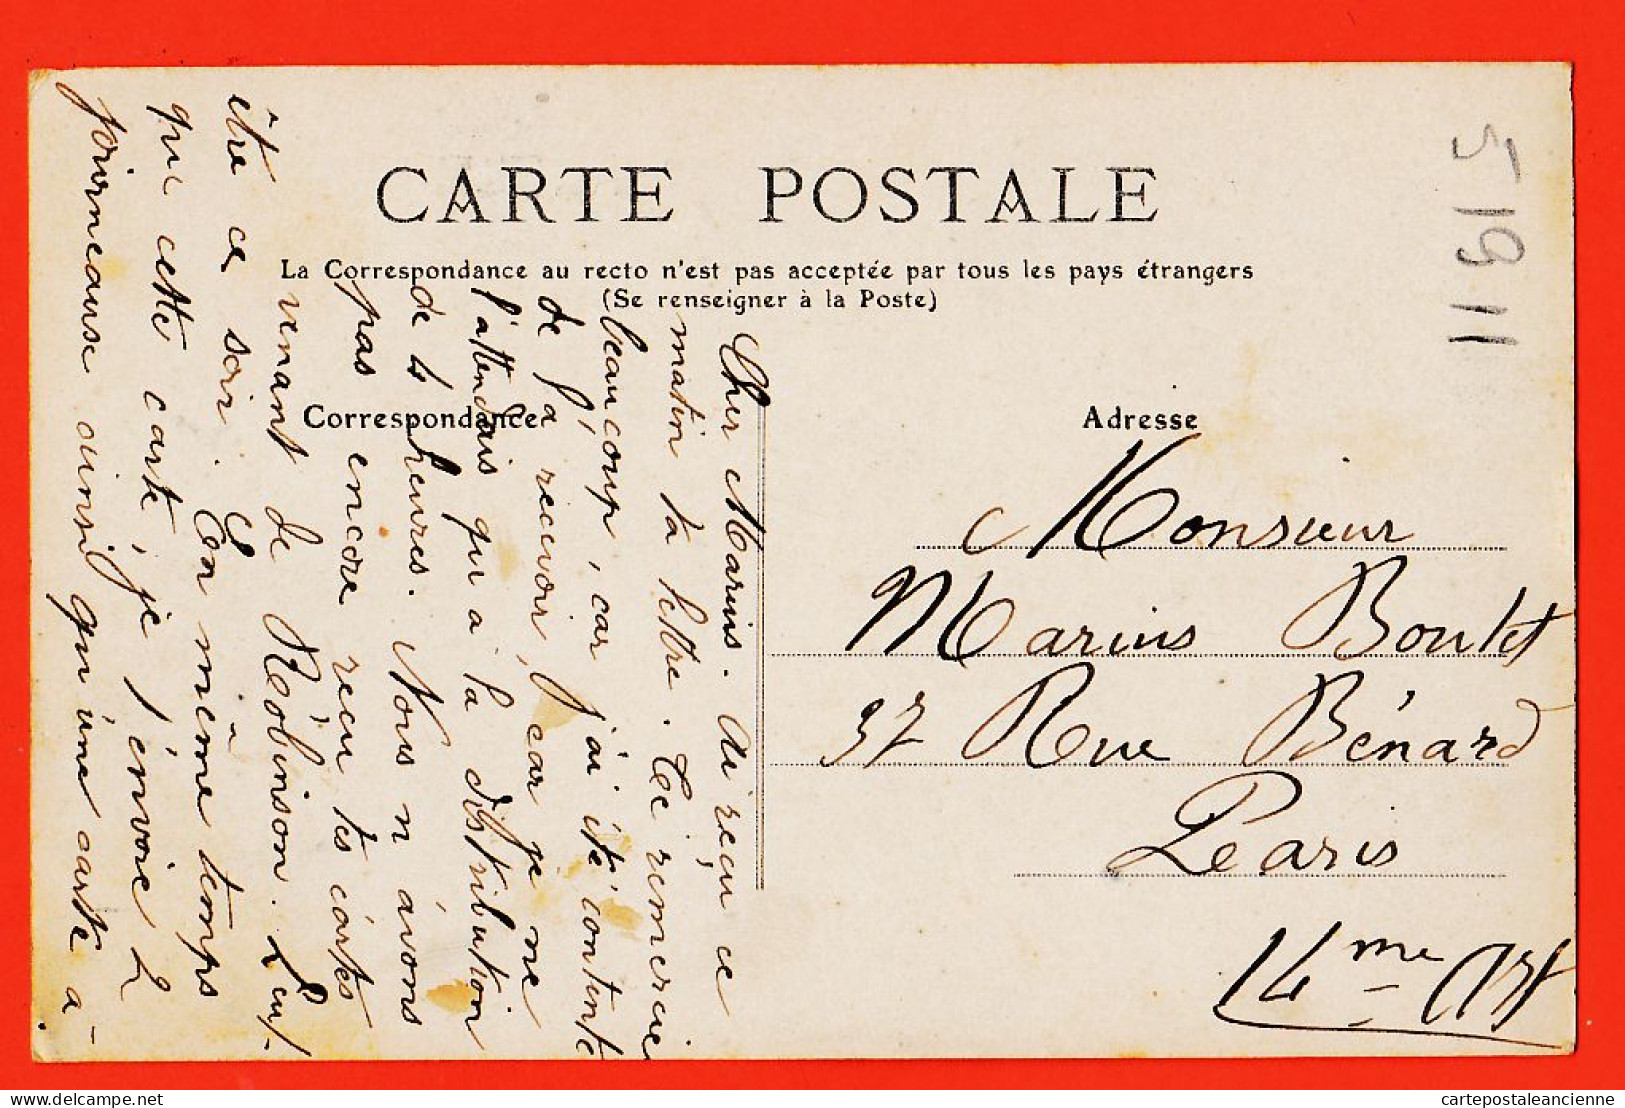 CARTE POSTALE
La Correspondance au recto n'est pas acceptée par tous les pays étrangers
(Se renseigner à la Poste)
Correspondance
Adresse
Cher Marius. Ai reçu ce
matin ta lettre. Te remercie
beaucoup, car j'ai été contente
de la recevoir, car je ne
l'attendais qu'a la distribution
de 4 heures. Nous n'avons
pas encore reçu tes cartes
venant de Robinson. Peut-
être ce soir. En même temps
que cette carte, je t'envoie 2
journeause ainsi qu'une carte a-
Monsieur
Marius Boulet
37 Rue Bénard
Paris
14me Arr
5 1911
delcampe.net
cartepostaleancienne